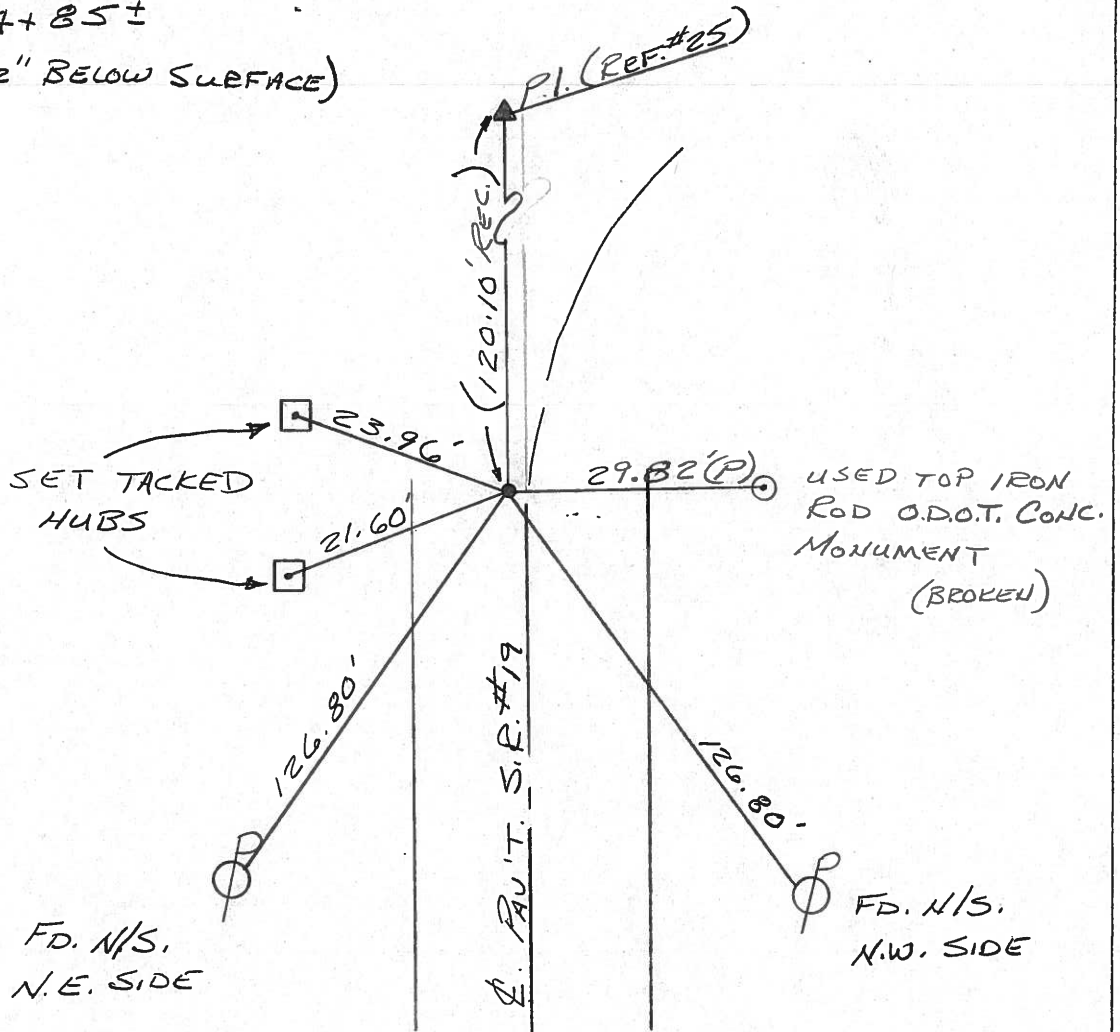 4+85±
2" BELOW SURFACE)
P.I. (REF. #25)
(120.10' REC.)
23.96'
SET TACKED
HUBS
21.60'
29.82'(P)
USED TOP IRON
ROD O.D.O.T. CONC.
MONUMENT
(BROKEN)
126.80'
126.80'
℄. PAV'T. S.R. #19
P
P
FD. N/S.
N.E. SIDE
FD. N/S.
N.W. SIDE